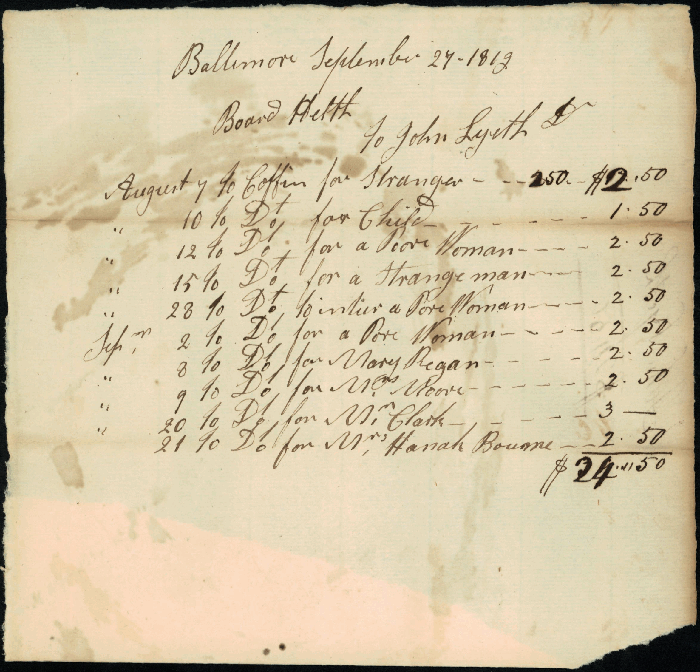 Baltimore September 27-1819
Board Helth
to John Lyeth Dr
August 7 to Coffin for Stranger - - 250 - $2.50
" 10 to Do, for Child 1.50
12 to Do, for a Pore Woman - - - - 2.50
" 15 to Do for a Strange man - - - - 2.50
" 28 to Do, to inter a Pore Woman - - - - 2.50
Sepr, 2 to Do for a Pore Woman - - - - 2.50
8 to Do, for Mary Regan - - - - 2.50
" 9 to Do, for Mrs Moore - - - - 2.50
" 20 to Do, for Mr, Clark - - - - 3 —
" 21 to Do, for Mrs, Hanah Bourne - - 2.50
$24.50